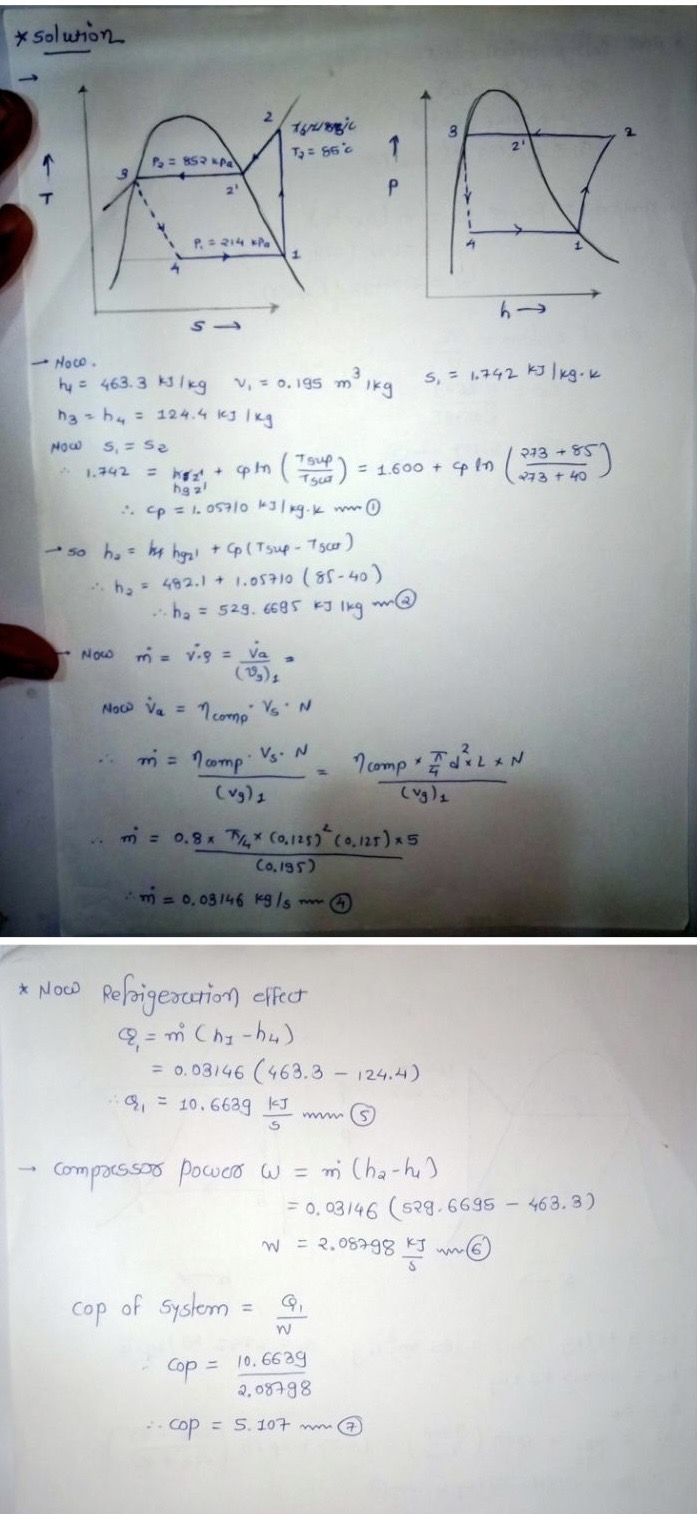 * Solution
→
2
T2 = 85°c
P2 = 852 kPa
3
2'
↑
T
P1 = 214 kPa
4
1
S →
3
2'
2
↑
P
4
1
h →
→ Now.
h1 = 463.3 kJ/kg V1 = 0.195 m³/kg S1 = 1.742 kJ/kg.k
h3 = h4 = 124.4 kJ/kg
Now S1 = S2
∴ 1.742 = hg2' + cp ln (Tsup/Tsat) = 1.600 + cp ln (273 + 85/273 + 40)
∴ cp = 1.05710 kJ/kg.k ①
→ so h2 = hg2' + cp (Tsup - Tsat)
∴ h2 = 482.1 + 1.05710 (85-40)
∴ h2 = 529.6695 kJ/kg ②
→ Now ṁ = v̇.ρ = V̇a/(vg)1 =
Now V̇a = ηcomp · Vs · N
∴ ṁ = ηcomp · Vs · N/(vg)1 = ηcomp × π/4 d² × L × N/(vg)1
∴ ṁ = 0.8 × π/4 × (0.125)² (0.125) × 5/(0.195)
∴ ṁ = 0.03146 kg/s ④
* Now Refrigeration effect
Q1 = ṁ (h1 - h4)
= 0.03146 (463.3 - 124.4)
∴ Q1 = 10.6639 kJ/s ⑤
→ compressor power W = ṁ (h2 - h1)
= 0.03146 (529.6695 - 463.3)
W = 2.08798 kJ/s ⑥
cop of system = Q1/W
∴ cop = 10.6639/2.08798
∴ cop = 5.107 ⑦